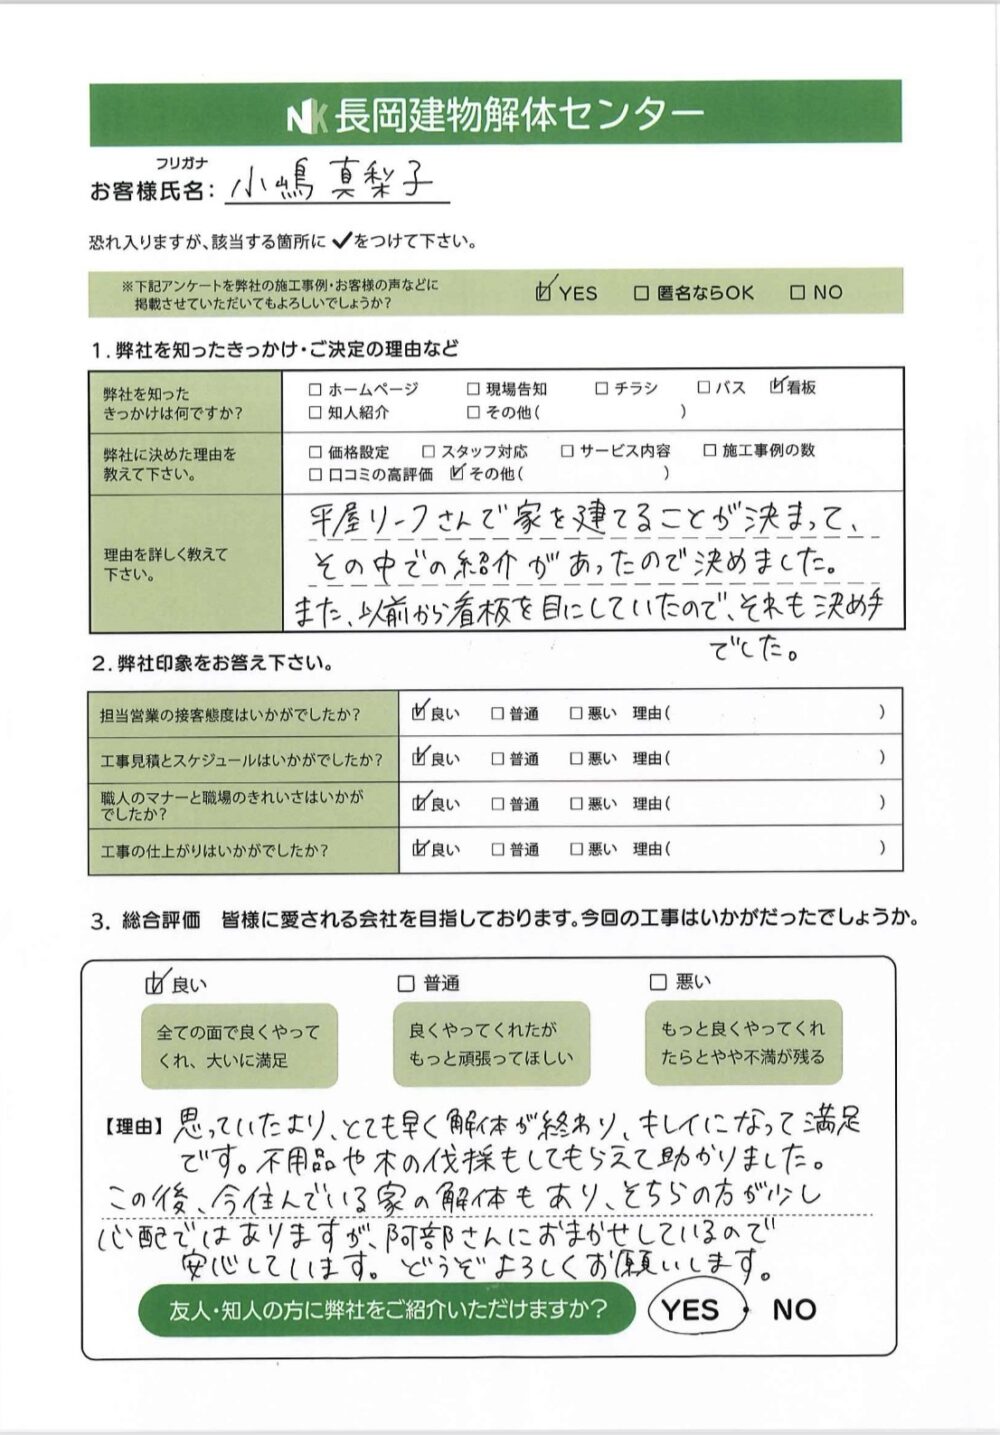 NK 長岡建物解体センター
フリガナ
お客様氏名: 小嶋 真梨子
恐れ入りますが、該当する箇所に✔をつけて下さい。
※下記アンケートを弊社の施工事例・お客様の声などに
掲載させていただいてもよろしいでしょうか?
☑ YES □ 匿名ならOK □ NO
1. 弊社を知ったきっかけ・ご決定の理由など
弊社を知った
きっかけは何ですか?
□ ホームページ □ 現場告知 □ チラシ □ バス ☑ 看板
□ 知人紹介 □ その他( )
弊社に決めた理由を
教えて下さい。
□ 価格設定 □ スタッフ対応 □ サービス内容 □ 施工事例の数
□ 口コミの高評価 ☑ その他( )
理由を詳しく教えて
下さい。
平屋リーフさんで家を建てることが決まって、
その中での紹介があったので決めました。
また、以前から看板を目にしていたので、それも決め手
でした。
2. 弊社印象をお答え下さい。
担当営業の接客態度はいかがでしたか?
☑ 良い □ 普通 □ 悪い 理由( )
工事見積とスケジュールはいかがでしたか?
☑ 良い □ 普通 □ 悪い 理由( )
職人のマナーと職場のきれいさはいかが
でしたか?
☑ 良い □ 普通 □ 悪い 理由( )
工事の仕上がりはいかがでしたか?
☑ 良い □ 普通 □ 悪い 理由( )
3. 総合評価 皆様に愛される会社を目指しております。今回の工事はいかがだったでしょうか。
☑ 良い □ 普通 □ 悪い
全ての面で良くやって
くれ、大いに満足
良くやってくれたが
もっと頑張ってほしい
もっと良くやってくれ
たらとやや不満が残る
【理由】思っていたより、とても早く解体が終わり、キレイになって満足
です。不用品や木の伐採もしてもらえて助かりました。
この後、今住んでいる家の解体もあり、そちらの方が少し
心配ではありますが、阿部さんにおまかせしているので
安心しています。どうぞよろしくお願いします。
友人・知人の方に弊社をご紹介いただけますか? YES・NO